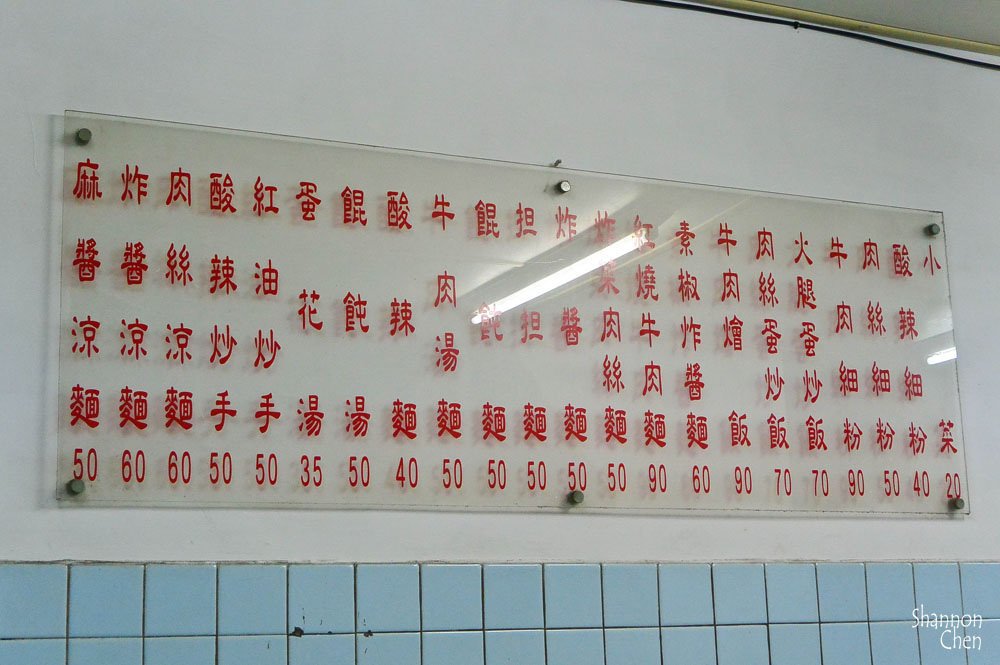 小菜 20
酸辣細粉 40
肉絲細粉 50
牛肉細粉 90
火腿蛋炒飯 70
肉絲蛋炒飯 70
牛肉燴飯 90
素椒炸醬麵 60
紅燒牛肉麵 90
炸菜肉絲麵 50
炸醬麵 50
担担麵 50
餛飩麵 50
牛肉湯麵 50
酸辣麵 40
餛飩湯 50
蛋花湯 35
紅油炒手 50
酸辣炒手 50
肉絲涼麵 60
炸醬涼麵 60
麻醬涼麵 50
Shannon
Chen